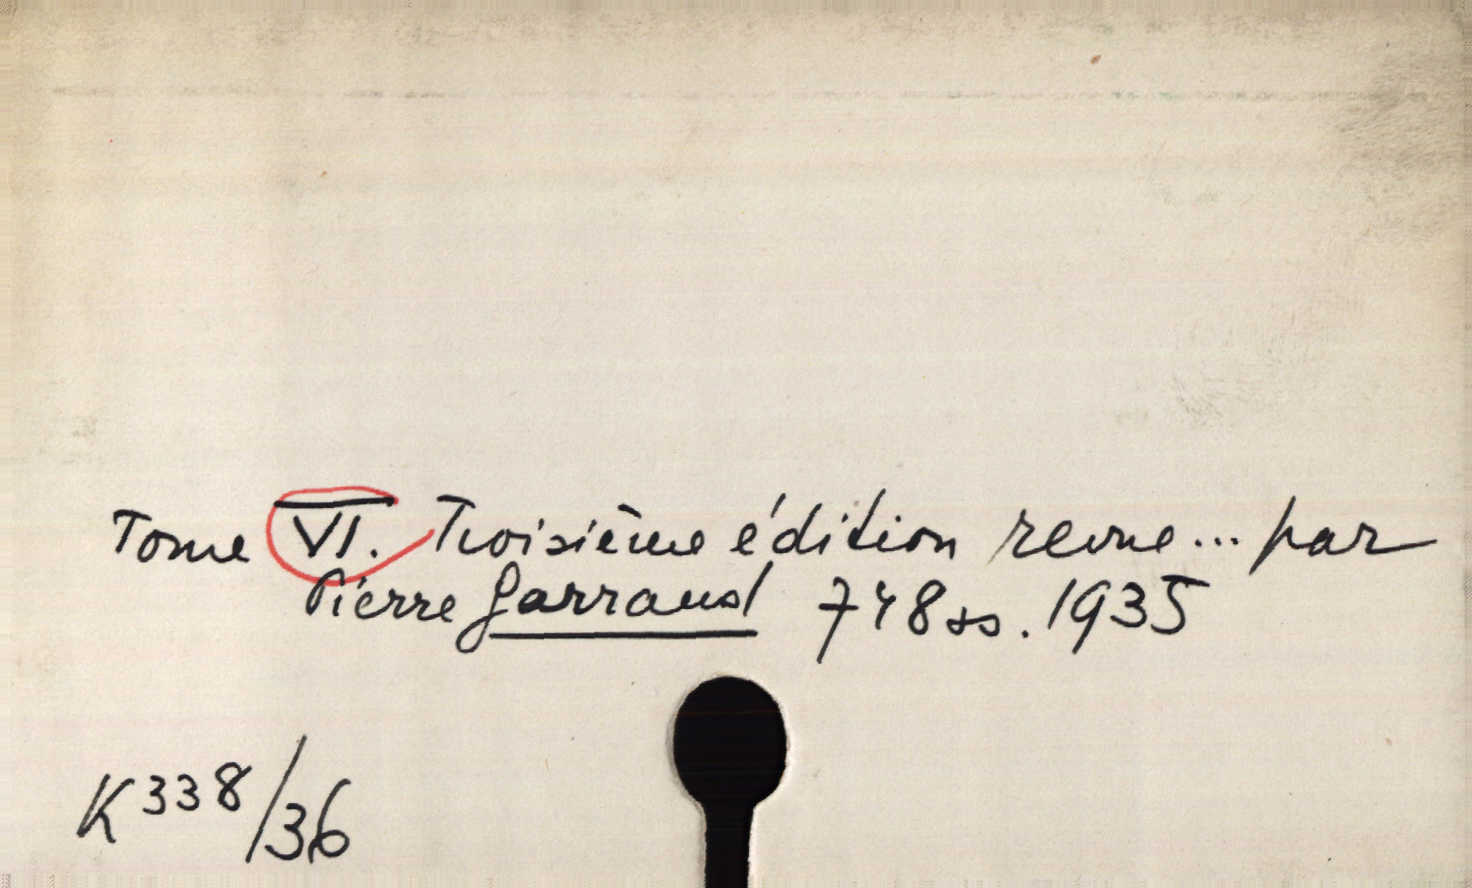 Tome VI. Troisième édition revue... par
Pierre Garraud 748 ss. 1935
K 338/36